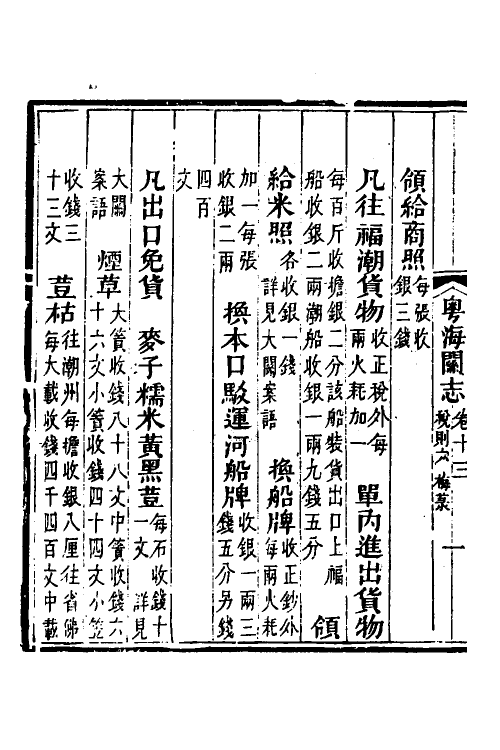 粵海關志 卷十三 稅則六 梅菉 一
領給商照 每張收
銀三錢
凡往福潮貨物 收正稅外每
兩火耗加一 單內進出貨物
每百斤收擔銀二分該船裝貨出口上福
船收銀二兩潮船收銀一兩九錢五分 領
給米照 各收銀一錢
詳見大關案語 換船牌 收正鈔外
每兩火耗
加一每張
收銀二兩 換本口駁運河船牌 收銀一兩三
錢五分另錢
四百
文
凡出口免貨 麥子糯米黃黑荳 每石收錢十
一文 詳見
大關
案語 煙草 大簣收錢八十八文中簣收錢六
十六文小簣收錢四十四文小笠
收錢三
十三文 荳枯 往潮州每擔收銀八厘往省佛
每大載收錢四千四百文中載